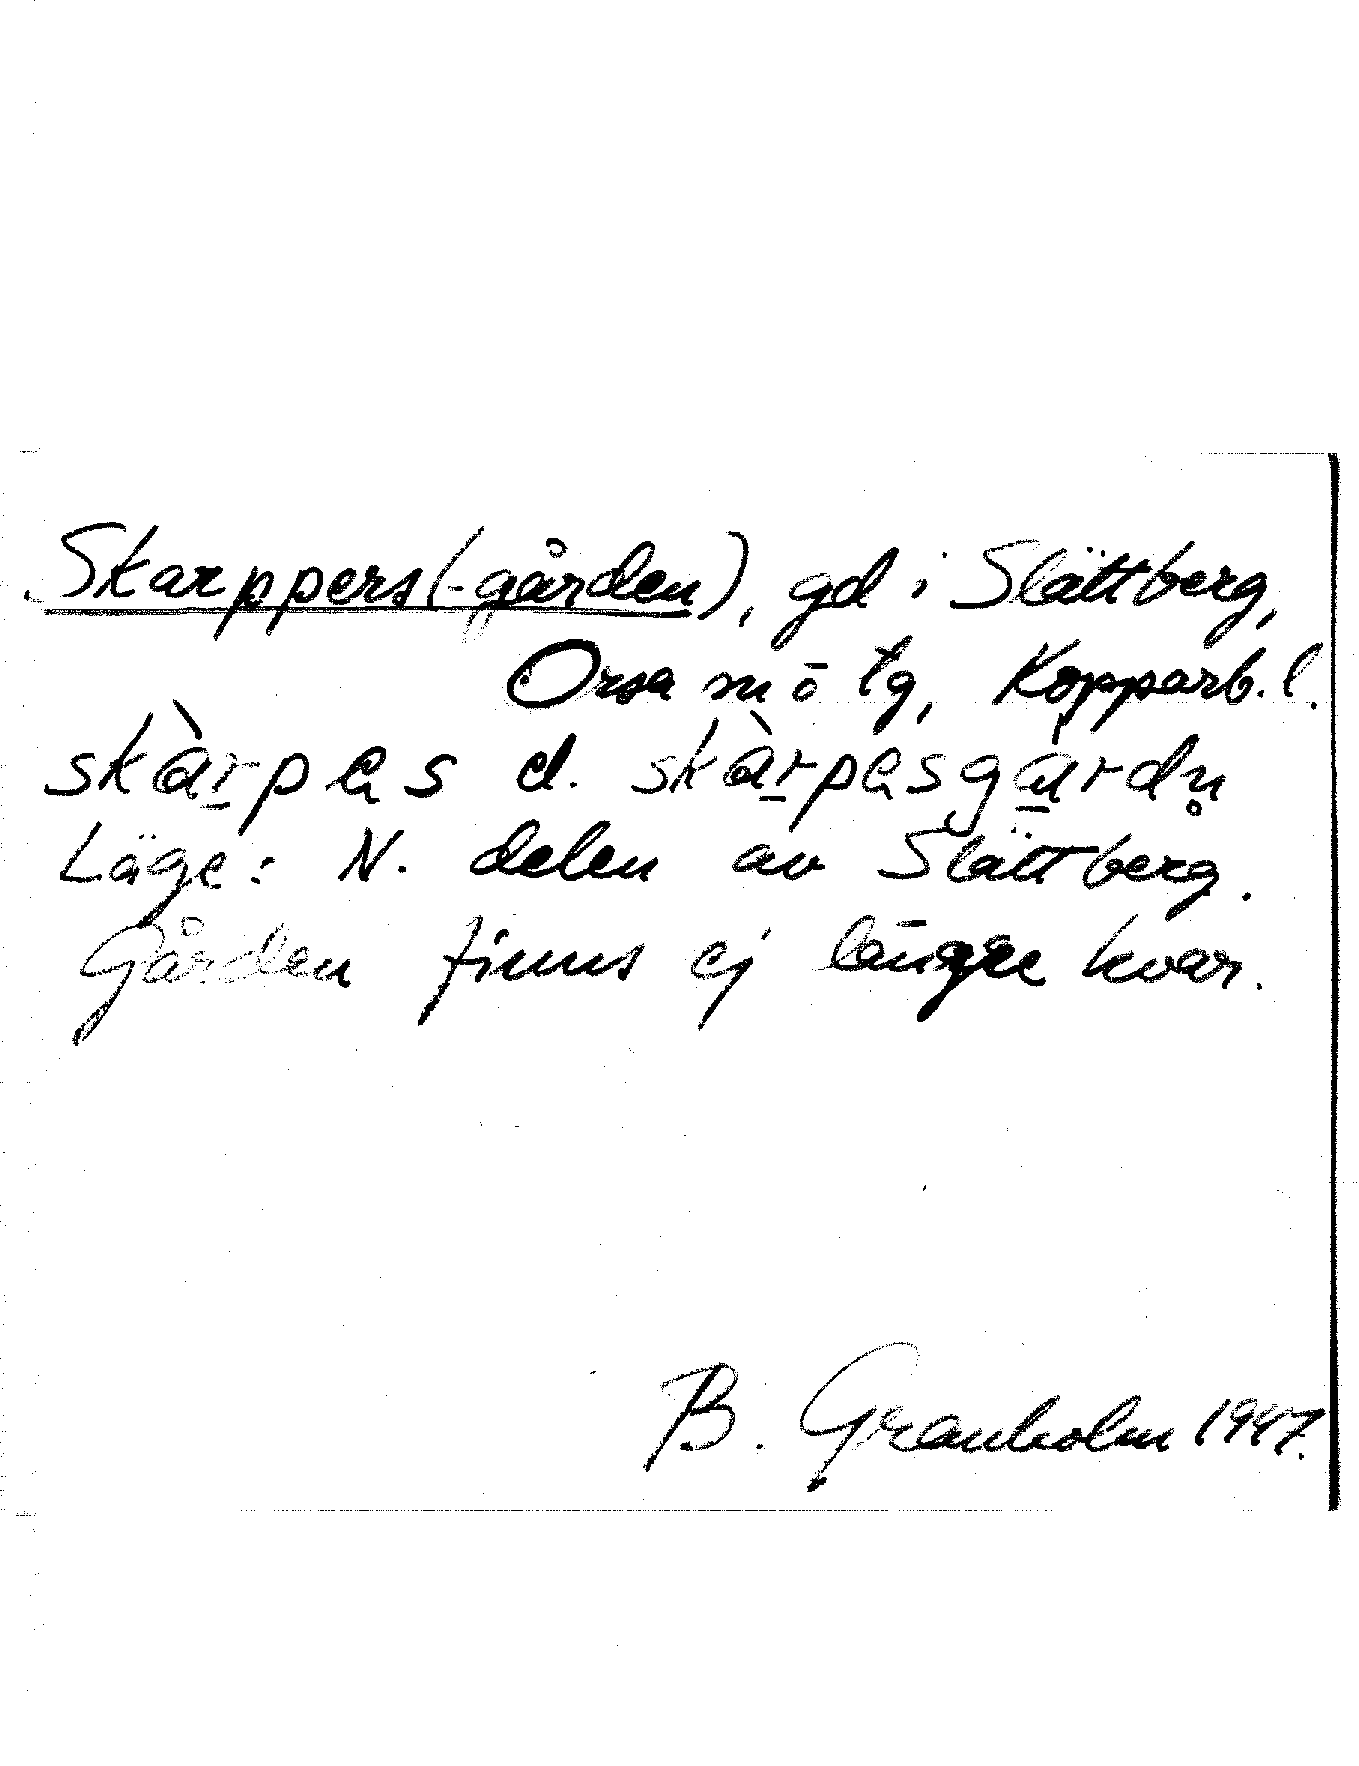 Skarppers(-gården), gd i Slättberg,
Orsa sn o tg, Kopparb. l.
skàrpes el. skàrpesgạrdn̥
Läge: N. delen av Slättberg.
Gården finns ej längre kvar.
B. Granholm 1947.